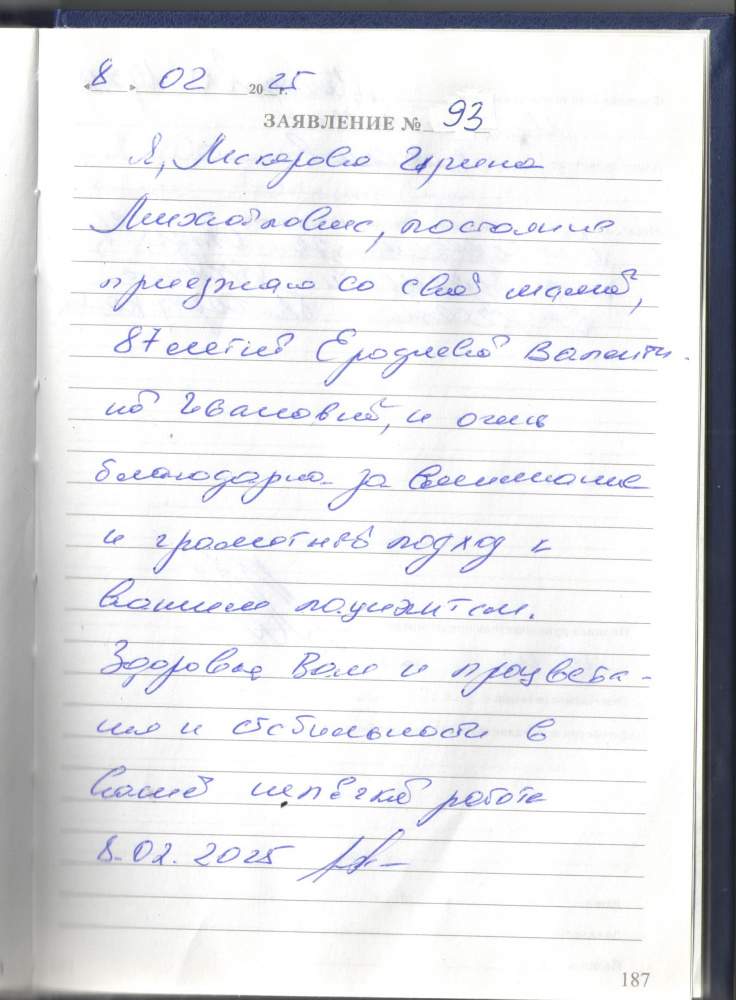 «8» 02 2025 г.
ЗАЯВЛЕНИЕ № 93
Я, Ирина
Михайловна, постоянно
приезжаю со своей мамой,
87 летней Валенти-
ной Ивановной, и очень
благодарна за внимание
и грамотный подход к
вашим пациентам.
Здоровья Вам и процвета-
ния и стабильности в
вашей нелёгкой работе
8.02.2025
187